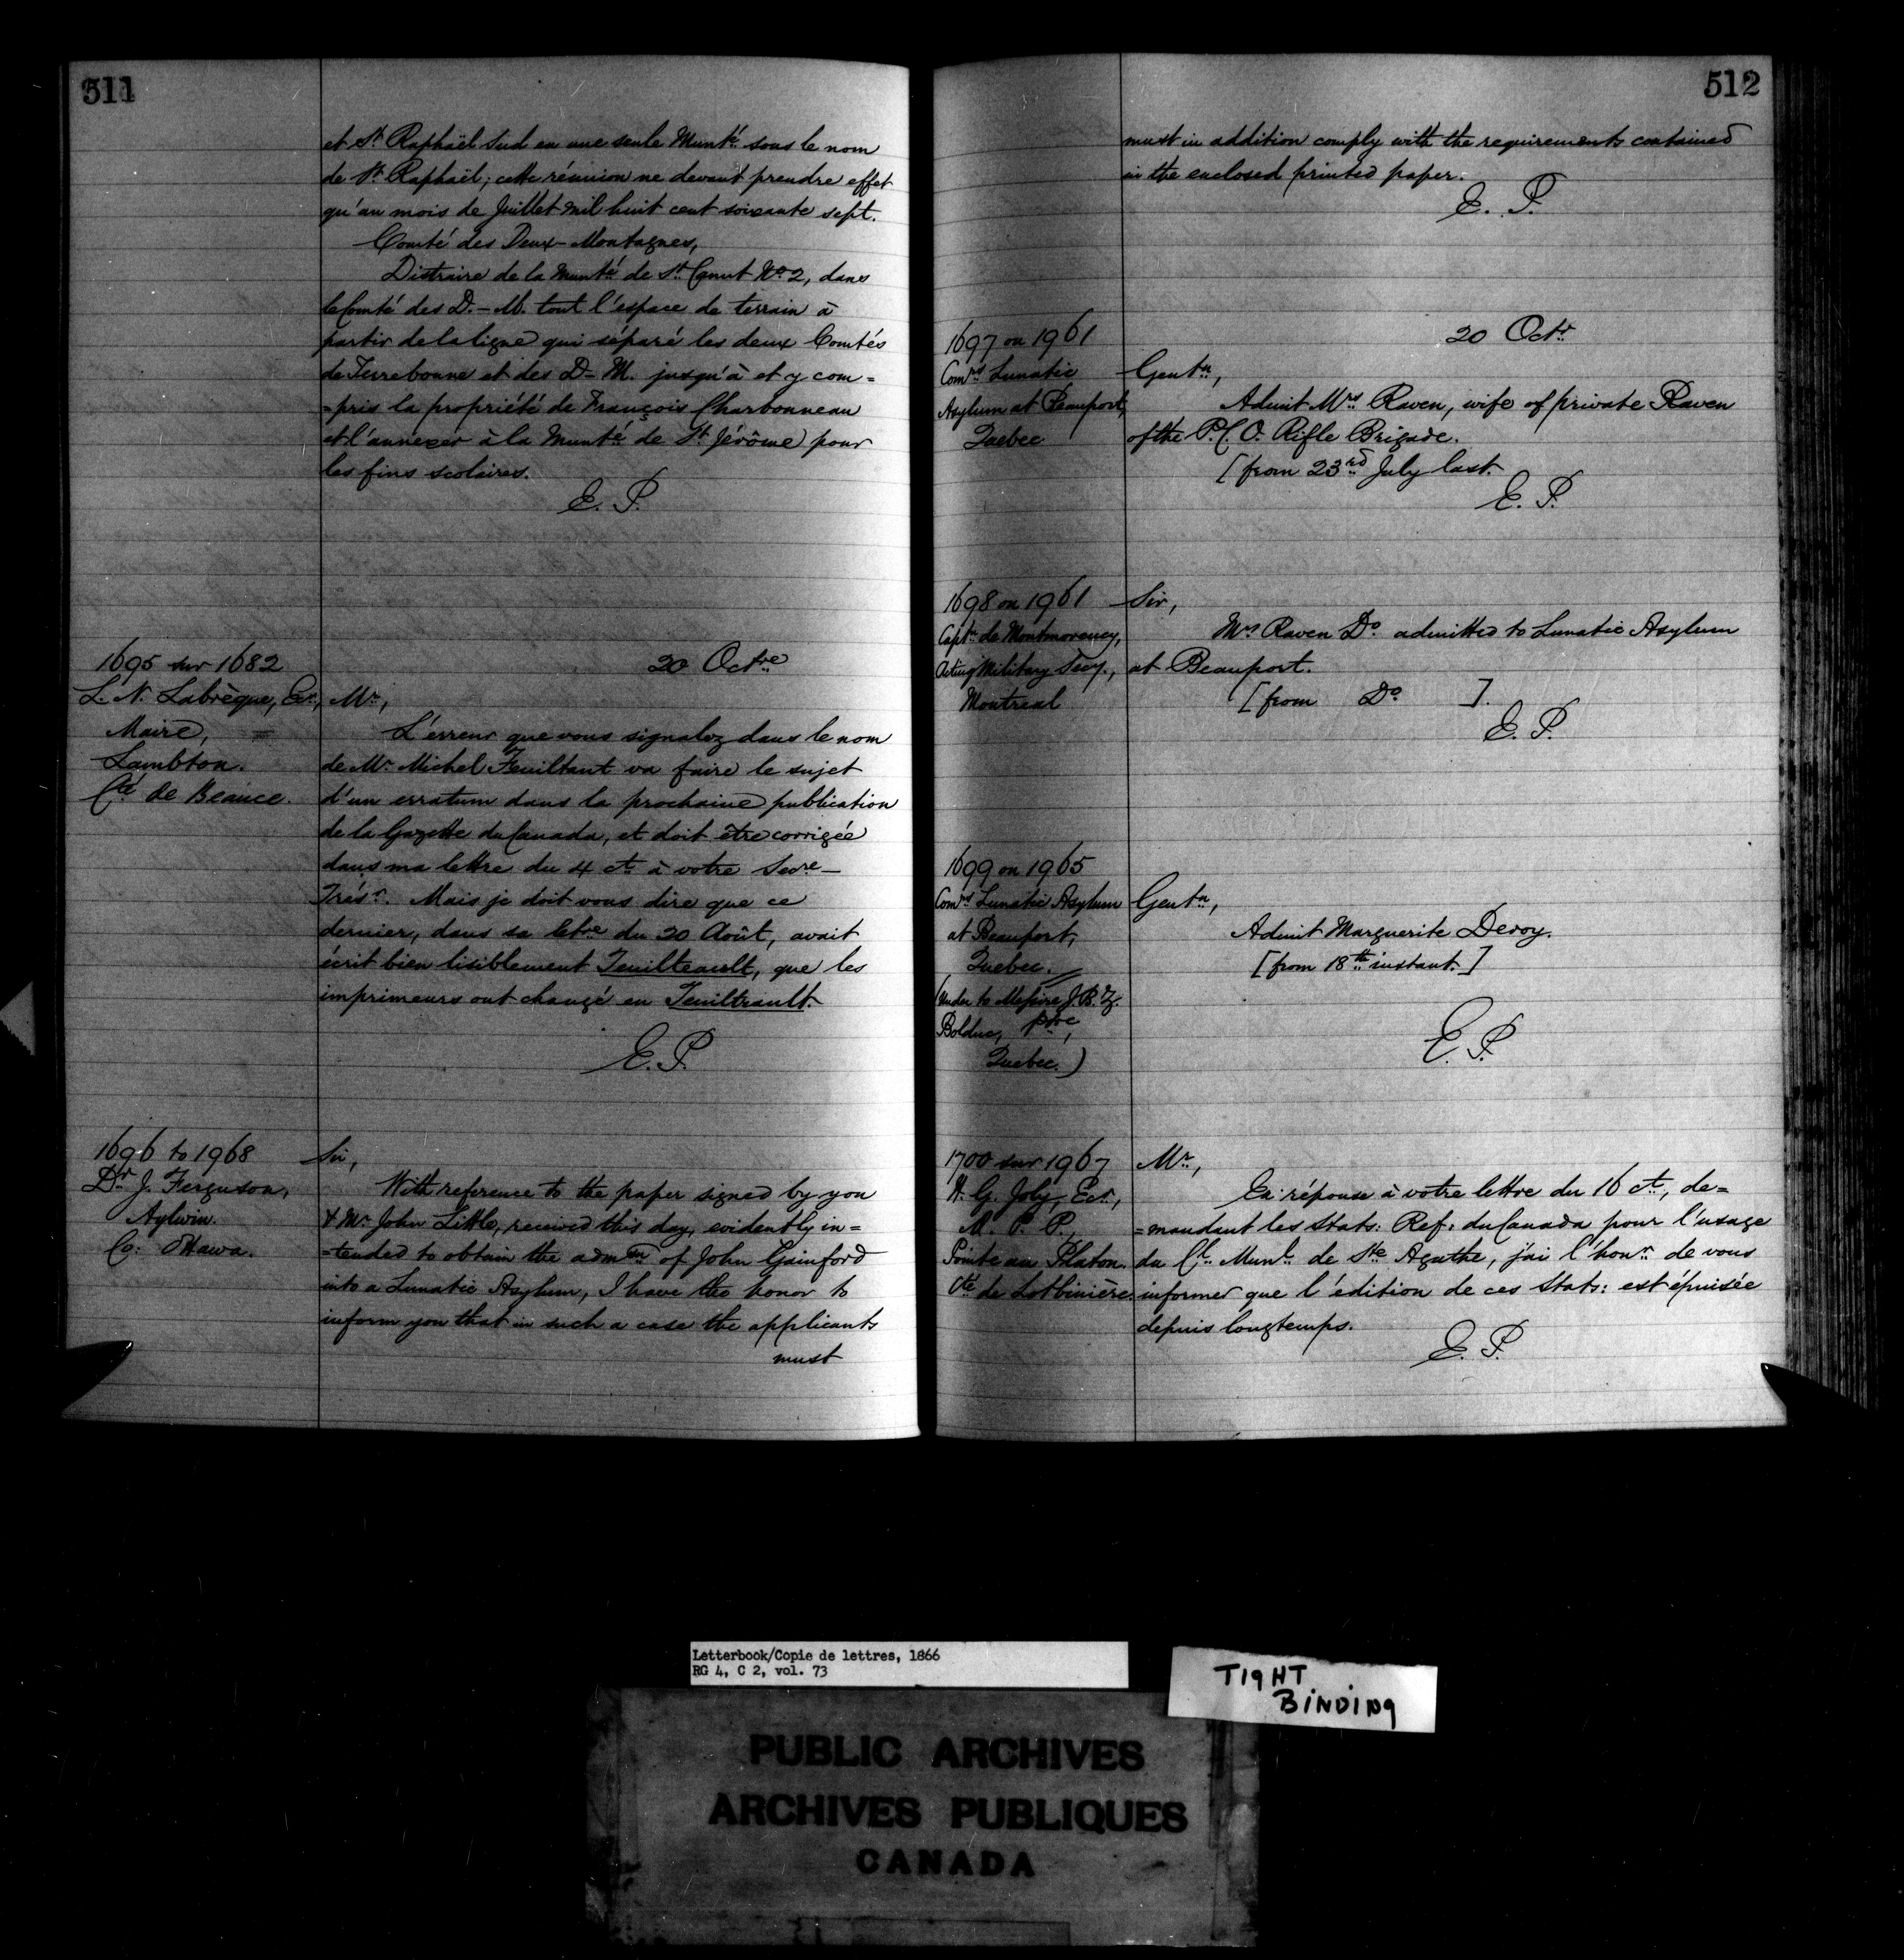 511
et St Raphaël Sud en une seule Munté sous le nom
de St Raphaël; cette réunion ne devant prendre effet
qu'au mois de Juillet mil huit cent soixante sept.
Comté des Deux-Montagnes,
Distraire de la Munté de St Canut No 2, dans
le Comté des D.-M. tout l'espace de terrain à
partir de la ligne qui séparé les deux Comtés
de Terrebonne et des D-M. jusqu'à et y com=
=pris la propriété de François Charbonneau
et l'annexer à la Munté de St Jérôme pour
les fins scolaires.
E. P.
1695 sur 1682
L. N. Labrèque, Ecr,
Maire,
Lambton.
Cté de Beauce.
20 Octre
Mr,
L'érreur que vous signalez dans le nom
de Mr Michel Feuiltant va faire le sujet
d'un erratum dans la prochaine publication
de la Gazette du Canada, et doit être corrigée
dans ma lettre du 4 ct à votre Secre-
Trésr. Mais je doit vous dire que ce
dernier, dans sa letre du 20 Août, avait
écrit bien lisiblement Feuilteault, que les
imprimeurs ont changé en Feuiltrault.
E. P.
1696 to 1968
Dr J. Ferguson,
Aylwin.
Co: Ottawa.
Sir,
With reference to the paper signed by you
& Mr John Little, received this day, evidently in=
=tended to obtain the admon of John Gainford
into a Lunatic Asylum, I have the honor to
inform you that in such a case the applicants
must
512
must in addition comply with the requirements contained
in the enclosed printed paper.
E. P.
1697 on 1961
Comrs Lunatic
Asylum at Beauport,
Quebec
20 Octr
Gentn,
Admit Mrs Raven, wife of private Raven
of the P. C. O. Rifle Brigade.
[from 23rd July last.
E. P.
1698 on 1961
Captn de Montmorency,
Acting Military Secy.,
Montreal
Sir,
Mrs Raven Do admitted to Lunatic Asylum
at Beauport.
[from Do ].
E. P.
1699 on 1965
Comrs Lunatic Asylum
at Beauport,
Quebec.
(Under to Messire J. B. Z.
Bolduc, ptre,
Quebec.)
Gentn,
Admit Marguerite Deroy.
[from 18th instant.]
E. P.
1700 sur 1967
H. G. Joly, Ecr,
M. P. P.,
Pointe au Platon.
Cté de Lotbinière.
Mr,
En réponse à votre lettre du 16 ct, de=
=mandant les Stats: Ref: du Canada pour l'usage
du Cl Munl de Ste Agathe, j'ai l'honr de vous
informer que l'édition de ces Stats: est épuisée
depuis longtemps.
E. P.
Letterbook/Copie de lettres, 1866
RG 4, C 2, vol. 73
TIGHT
BINDING
PUBLIC ARCHIVES
ARCHIVES PUBLIQUES
CANADA